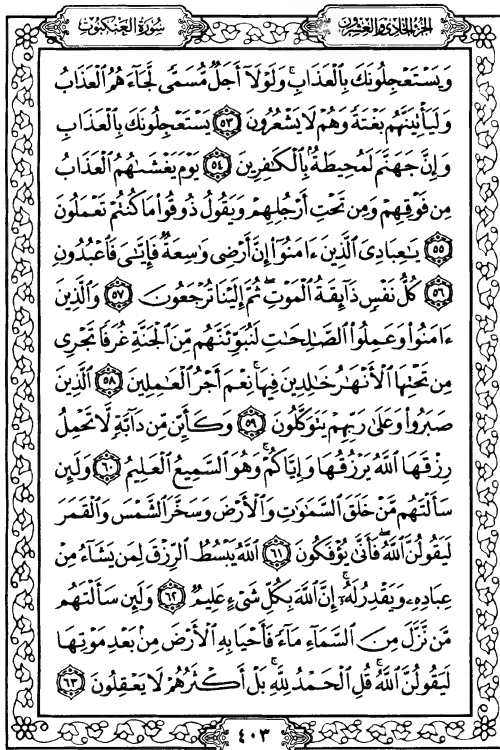 سورة العنكبوت
الجزء الحادي والعشرون
وَيَسْتَعْجِلُونَكَ بِالْعَذَابِ ۚ وَلَوْلَا أَجَلٌ مُّسَمًّى لَّجَاءَهُمُ الْعَذَابُ
وَلَيَأْتِيَنَّهُم بَغْتَةً وَهُمْ لَا يَشْعُرُونَ ٥٣ يَسْتَعْجِلُونَكَ بِالْعَذَابِ
وَإِنَّ جَهَنَّمَ لَمُحِيطَةٌ بِالْكَٰفِرِينَ ٥٤ يَوْمَ يَغْشَىٰهُمُ الْعَذَابُ
مِن فَوْقِهِمْ وَمِن تَحْتِ أَرْجُلِهِمْ وَيَقُولُ ذُوقُوا مَا كُنتُمْ تَعْمَلُونَ
٥٥ يَٰعِبَادِيَ الَّذِينَ ءَامَنُوا إِنَّ أَرْضِي وَٰسِعَةٌ فَإِيَّٰيَ فَاعْبُدُونِ
٥٦ كُلُّ نَفْسٍ ذَائِقَةُ الْمَوْتِ ۖ ثُمَّ إِلَيْنَا تُرْجَعُونَ ٥٧ وَالَّذِينَ
ءَامَنُوا وَعَمِلُوا الصَّٰلِحَٰتِ لَنُبَوِّئَنَّهُم مِّنَ الْجَنَّةِ غُرَفًا تَجْرِي
مِن تَحْتِهَا الْأَنْهَٰرُ خَٰلِدِينَ فِيهَا ۚ نِعْمَ أَجْرُ الْعَٰمِلِينَ ٥٨ الَّذِينَ
صَبَرُوا وَعَلَىٰ رَبِّهِمْ يَتَوَكَّلُونَ ٥٩ وَكَأَيِّن مِّن دَابَّةٍ لَّا تَحْمِلُ
رِزْقَهَا اللَّهُ يَرْزُقُهَا وَإِيَّاكُمْ ۚ وَهُوَ السَّمِيعُ الْعَلِيمُ ٦٠ وَلَئِن
سَأَلْتَهُم مَّنْ خَلَقَ السَّمَٰوَٰتِ وَالْأَرْضَ وَسَخَّرَ الشَّمْسَ وَالْقَمَرَ
لَيَقُولُنَّ اللَّهُ ۖ فَأَنَّىٰ يُؤْفَكُونَ ٦١ اللَّهُ يَبْسُطُ الرِّزْقَ لِمَن يَشَاءُ مِنْ
عِبَادِهِ وَيَقْدِرُ لَهُ ۚ إِنَّ اللَّهَ بِكُلِّ شَيْءٍ عَلِيمٌ ٦٢ وَلَئِن سَأَلْتَهُم
مَّن نَّزَّلَ مِنَ السَّمَاءِ مَاءً فَأَحْيَا بِهِ الْأَرْضَ مِن بَعْدِ مَوْتِهَا
لَيَقُولُنَّ اللَّهُ ۚ قُلِ الْحَمْدُ لِلَّهِ ۚ بَلْ أَكْثَرُهُمْ لَا يَعْقِلُونَ ٦٣
٤٠٣